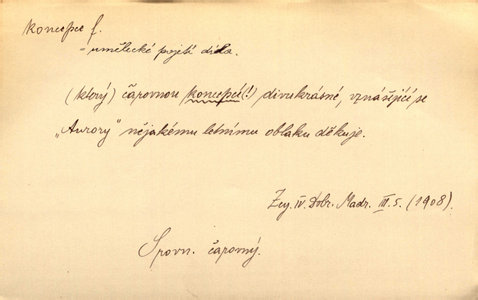 Koncepce f.
- umělecké pojetí díla.
(který) čarovnou koncepcí(!) divukrásné, vznášející se
„Aurory" nějakému letnímu oblaku děkuje.
Zey. IV. Dobr. Madr. III. 5. (1908)
Srovn. čarovný.